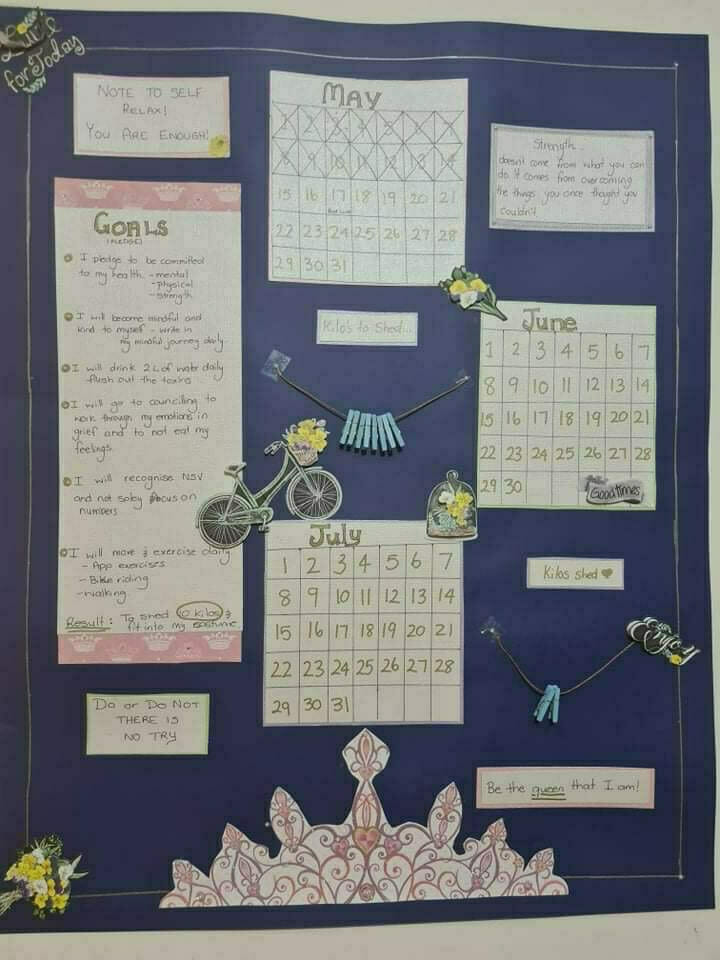 Live
for Today
NOTE TO SELF
RELAX!
YOU ARE ENOUGH!
MAY
1 2 3 4 5 6 7
8 9 10 11 12 13 14
15 16 17 18 19 20 21
22 23 24 25 26 27 28
29 30 31
Strength...
doesn't come from what you can
do. It comes from overcoming
the things you once thought you
couldn't
GOALS
(PLEDGE)
I pledge to be committed
to my health. - mental
- physical
- strength
I will become mindful and
kind to myself - write in
my mindful journey daily.
I will drink 2L of water daily
flush out the toxins
I will go to councilling to
work through my emotions in
grief and to not eat my
feelings.
I will recognise NSV
and not soley focus on
numbers
I will move & exercise daily
- App exercises
- Bike riding
- Walking
Result: To shed 10 kilos &
fit into my costume.
Kilo's to Shed...
June
1 2 3 4 5 6 7
8 9 10 11 12 13 14
15 16 17 18 19 20 21
22 23 24 25 26 27 28
29 30
Good times
July
1 2 3 4 5 6 7
8 9 10 11 12 13 14
15 16 17 18 19 20 21
22 23 24 25 26 27 28
29 30 31
Kilos shed
Enjoy
DO OR DO NOT
THERE IS
NO TRY
Be the queen that I am!